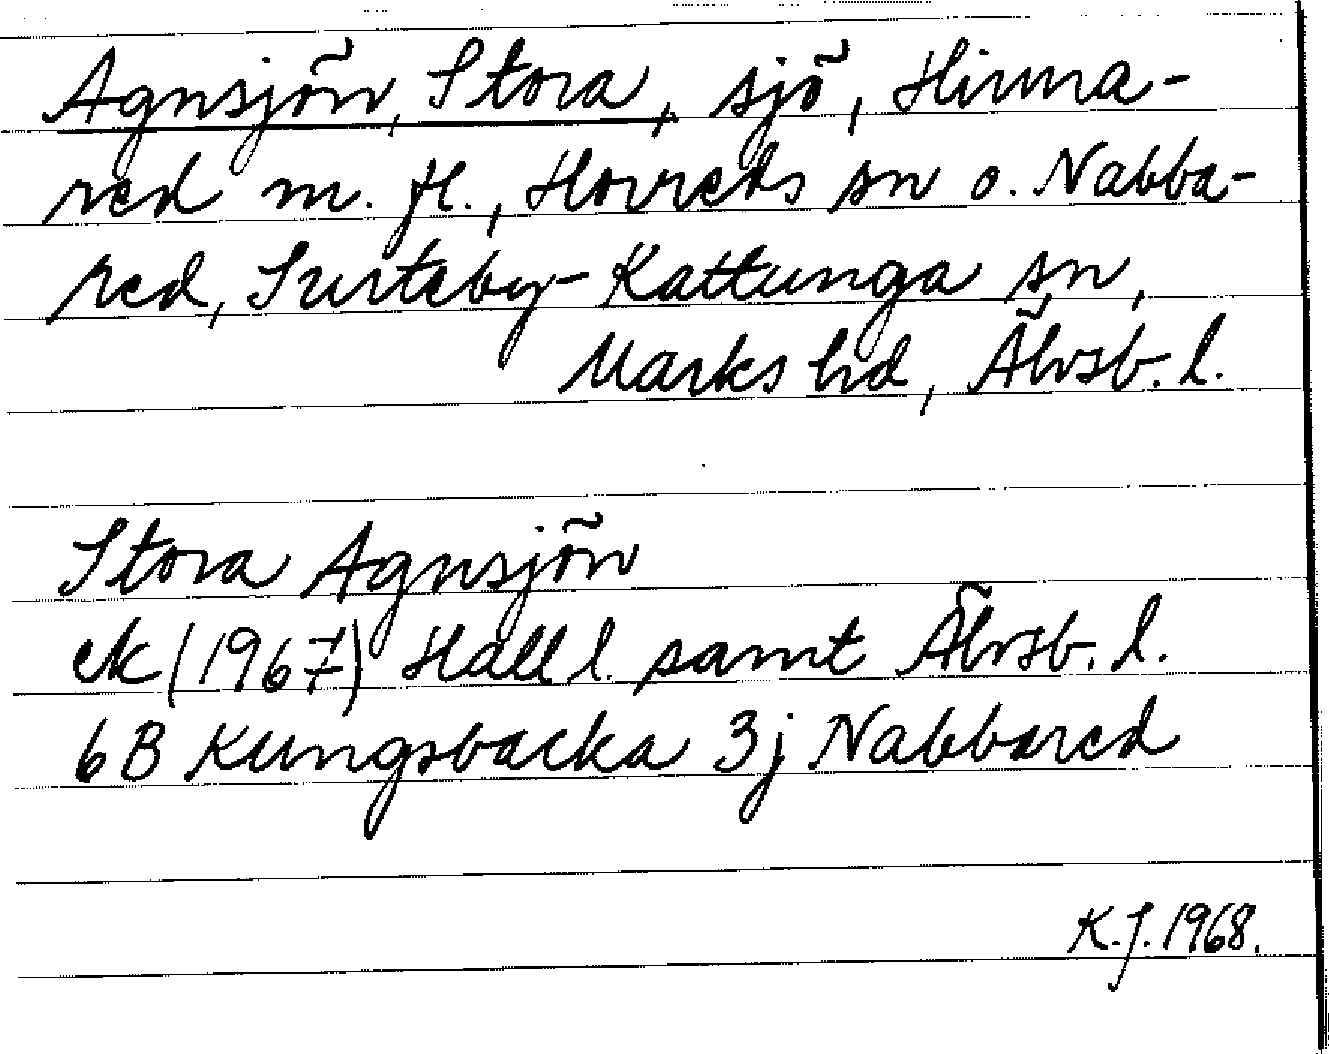 Agnsjön, Stora, sjö, Hinna-
red m. fl., Horreds sn o. Nabba-
red, Surteby-Kattunga sn,
Marks hd, Älvsb. l.
Stora Agnsjön
ek (1967) Hall l. samt Älvsb. l.
6B Kungsbacka 3j Nabbared
K.J. 1968.